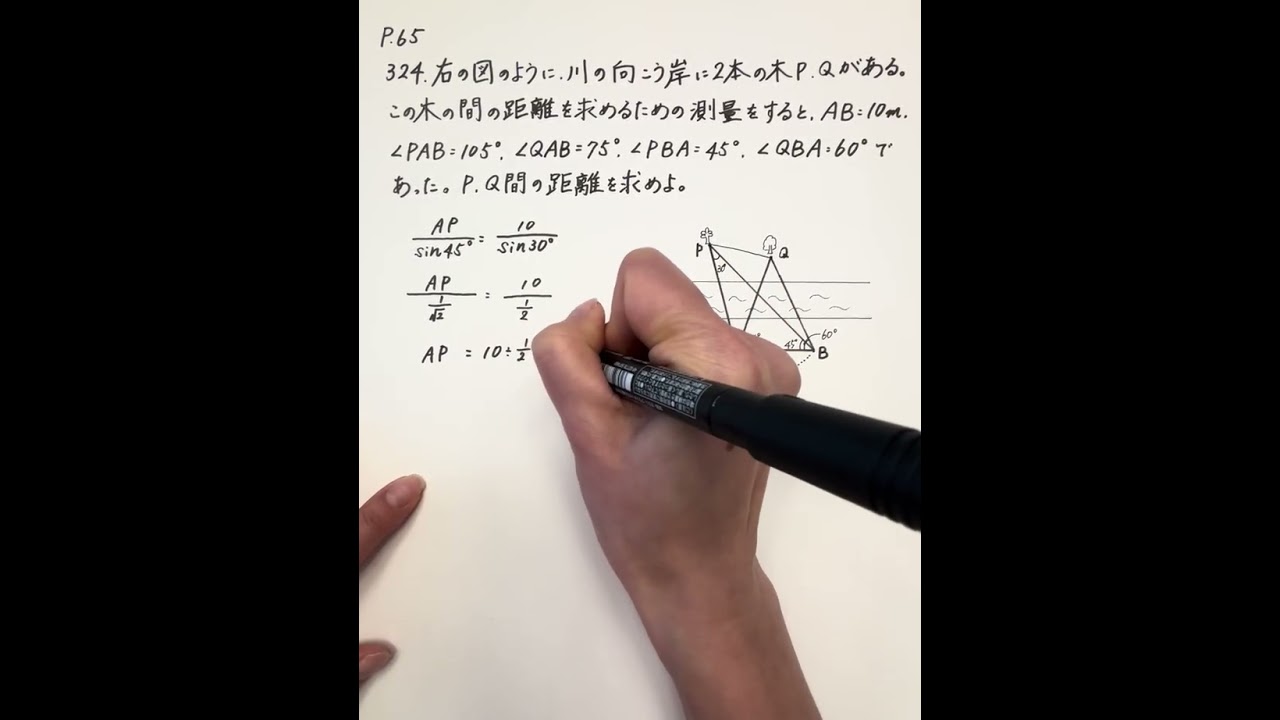 P.65
324. 右の図のように、川の向こう岸に2本の木P.Qがある。
この木の間の距離を求めるための測量をすると、AB=10m.
∠PAB=105°. ∠QAB=75°. ∠PBA=45°. ∠QBA=60°で
あった。P.Q間の距離を求めよ。
AP/sin45° = 10/sin30°
AP/(1/√2) = 10/(1/2)
AP = 10÷1/2
P Q
30°
45° 60°
B